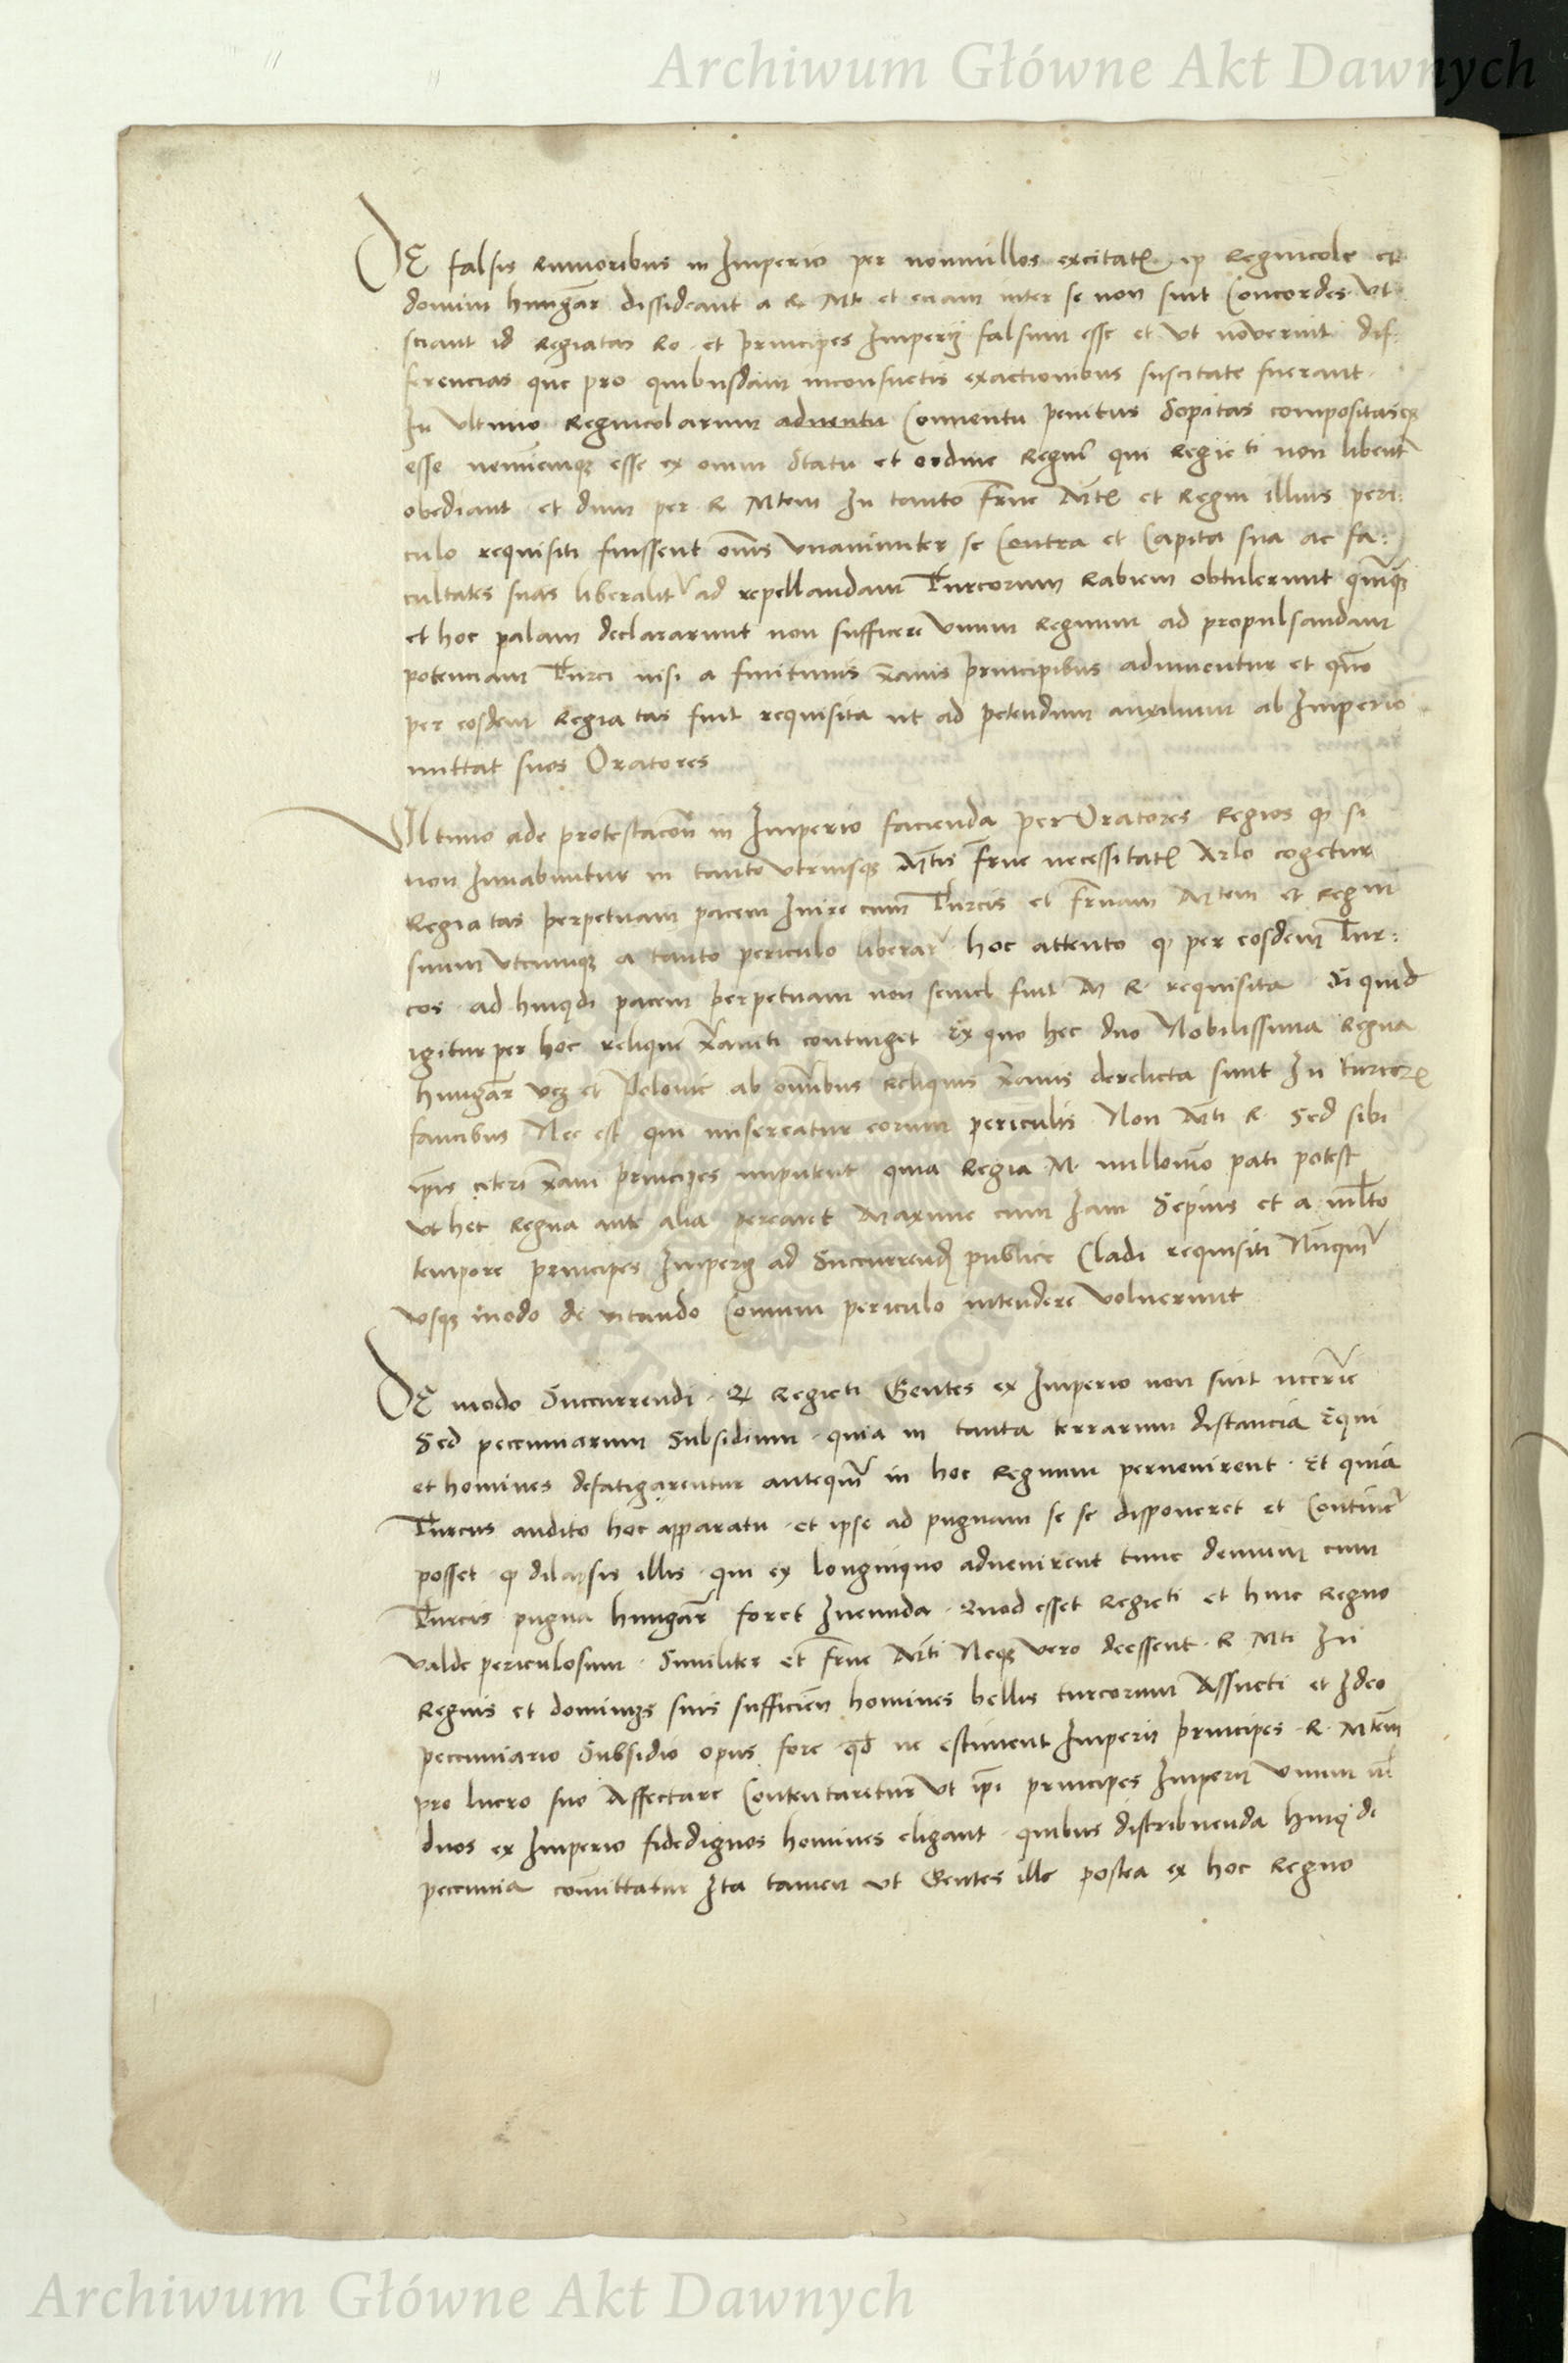 Archiwum Główne Akt Dawnych
DE falsis Rumoribus in Imperio per nonnullos excitatꝭ ꝙ Regnicole et
domini hungar̄ dissideant a R Mte et eciam inter se non sint Concordes Ut
sciant id Regia tas Ro. et principes Imperij falsum esse et ut noverint dif-
ferencias que pro quibusdam inconsuetis exactionibus suscitate fuerant
In ultimo Regnicolarum adventu Conventu penitus Sopitas compositasqꝫ
esse neminemqꝫ esse ex omni Statu et ordine Regni qui Regie ti non libent
obediant et dum per R Mtem In tanto frn̄e Mtꝭ et Regni illius peri:
culo requisiti fuissent om̄is unanimiter se Contra et Capita sua ac fa:
cultates suas liberalit ad repellandam Turcorum Rabiem obtulerunt
et hoc palam declararunt non sufficere Unum Regnum ad propulsandam
potenciam Turci nisi a finitimis xr̄anis principibus adiuventur et
per eosdem Regia tas fuit requisita ut ad petendum auxilium ab Imperio
mittat suos Oratores
Ultimo a de protestacōn in Imperio facienda per Oratores Regios ꝙ si
non Iuvabuntur in tanto utriusqꝫ Mt̄is frn̄e necessitatꝭ Ar̄lo cogetur
Regia tas perpetuam pacem Inire cum Turcis et frn̄am Mtem et Regni
suum utrumqꝫ a tanto periculo liberar̄ hoc attento ꝙ per eosdem Tur:
cos ad huiꝰdi pacem perpetuam non semel fuit M R. requisita Si quid
igitur per hoc relique xr̄aniti continget Ex quo hec duo Nobilissima Regna
hungar̄ vcꝫ et Polonie ab omībus reliquis xr̄anis derelicta sunt In turcorꝭ
faucibus Nec est qui misereatur eorum periculis Non Mti R. Sed sibi
ip̄is ceteri xr̄ani principes imputent quia Regia M. nullomō pati potest
ut hec Regna ante alia pereant Maxime cum Iam Sepius et a mlto
tempore principes Imperij ad Succurrend publice Cladi requisiti
usqꝫ modo de vitando Comuni periculo intendere voluerunt
DE modo Succurrendi. Q Regie ti Gentes ex Imperio non sint nccr̄ie
Sed pecuniarum Subsidium quia in tanta terrarum distancia Equi
et homines defatigarentur anteqm̄ in hoc Regnum pervenirent. Et quia
Turcus audito hoc apparatu et ipse ad pugnam se se disponeret et Contine
posset ꝙ dilapsis illis qui ex longinquo advenirent tunc demum cum
Turcis pugna hungar̄ foret Ineunda. Quod esset Regie ti et huic Regno
valde periculosum. Similiter et frn̄e Mti Neqꝫ vero deessent R. Mti In
Regnis et dominijs suis sufficien̄ homines bellis turcorum Assueti et Ideo
pecuniario Subsidio opus fore qd ne estiment Imperii principes R. Mtem
pro lucro suo Affectare Contentaretur ut ip̄i principes Imperii Unum
duos ex Imperio fidedignos homines eligant quibus distribuenda huiꝰdi
pecunia comittatur Ita tamen ut Gentes ille postea ex hoc Regno
Archiwum Główne Akt Dawnych